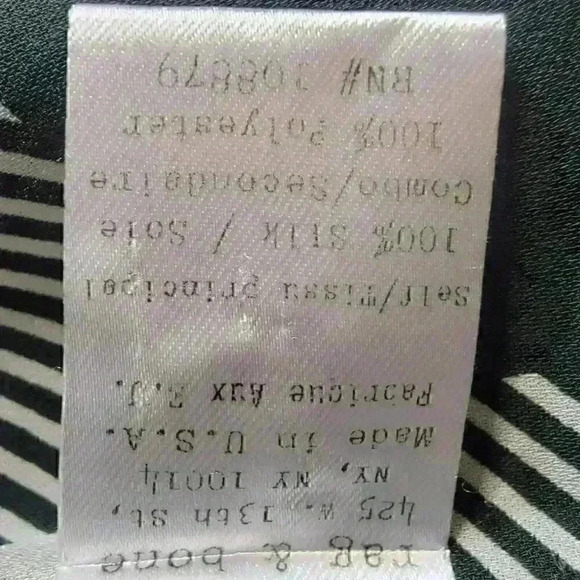 rag & bone
425 W. 13th St,
NY, NY 10014
Made in U.S.A.
Fabrique Aux E.U.
Self/Tissu principel
100% Silk / Soie
Combo/Secondaire
100% Polyester
RN# 108879